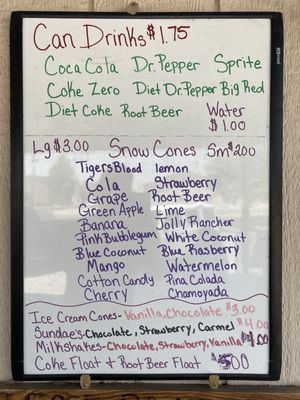 Can Drinks $1.75
Coca Cola Dr. Pepper Sprite
Coke Zero Diet Dr. Pepper Big Red
Diet Coke Root Beer Water
$1.00
Lg $3.00 Snow Cones Sm $2.00
Tigers Blood lemon
Cola Strawberry
Grape Root Beer
Green Apple Lime
Banana Jolly Rancher
Pink Bubblegum White Coconut
Blue Coconut Blue Rasberry
Mango Watermelon
Cotton Candy Pina Colada
Cherry Chamoyada
Ice Cream Cones - Vanilla, Chocolate $3.00
Sundae's - Chocolate, Strawberry, Carmel $4.00
Milkshakes - Chocolate, Strawberry, Vanilla
Coke Float & Root Beer Float $5.00